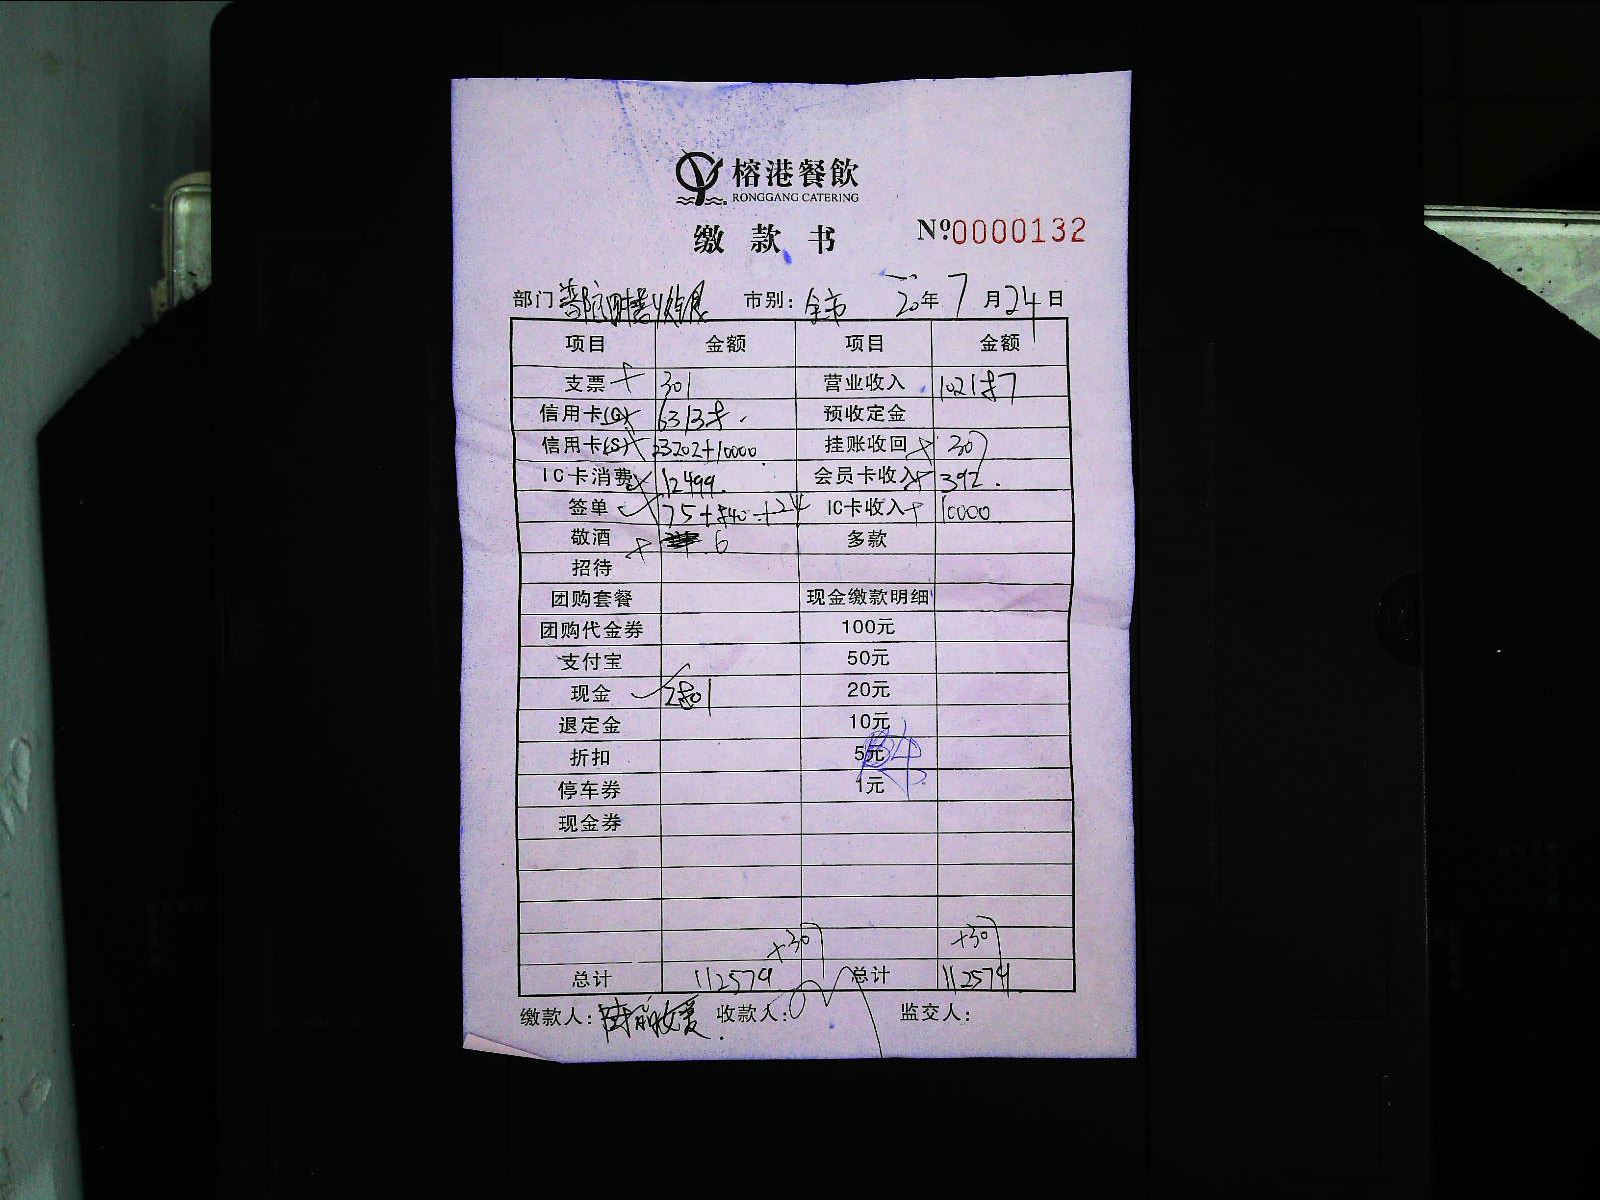 榕港餐飲
RONGGANG CATERING
缴款书 №0000132
部门 市别: 全市 20年7月24日
项目 金额 项目 金额
支票 301 营业收入 102187
信用卡(G) 63138 预收定金
信用卡(S) 23202+10000 挂账收回 +307
IC卡消费 12499. 会员卡收入 +392.
签单 75+840+24 IC卡收入 +10000
敬酒 6 多款
招待
团购套餐 现金缴款明细
团购代金券 100元
支付宝 50元
现金 2801 20元
退定金 10元
折扣 5元
停车券 1元
现金券
+307 +307
总计 112579 总计 112579
缴款人: 收款人: 监交人: